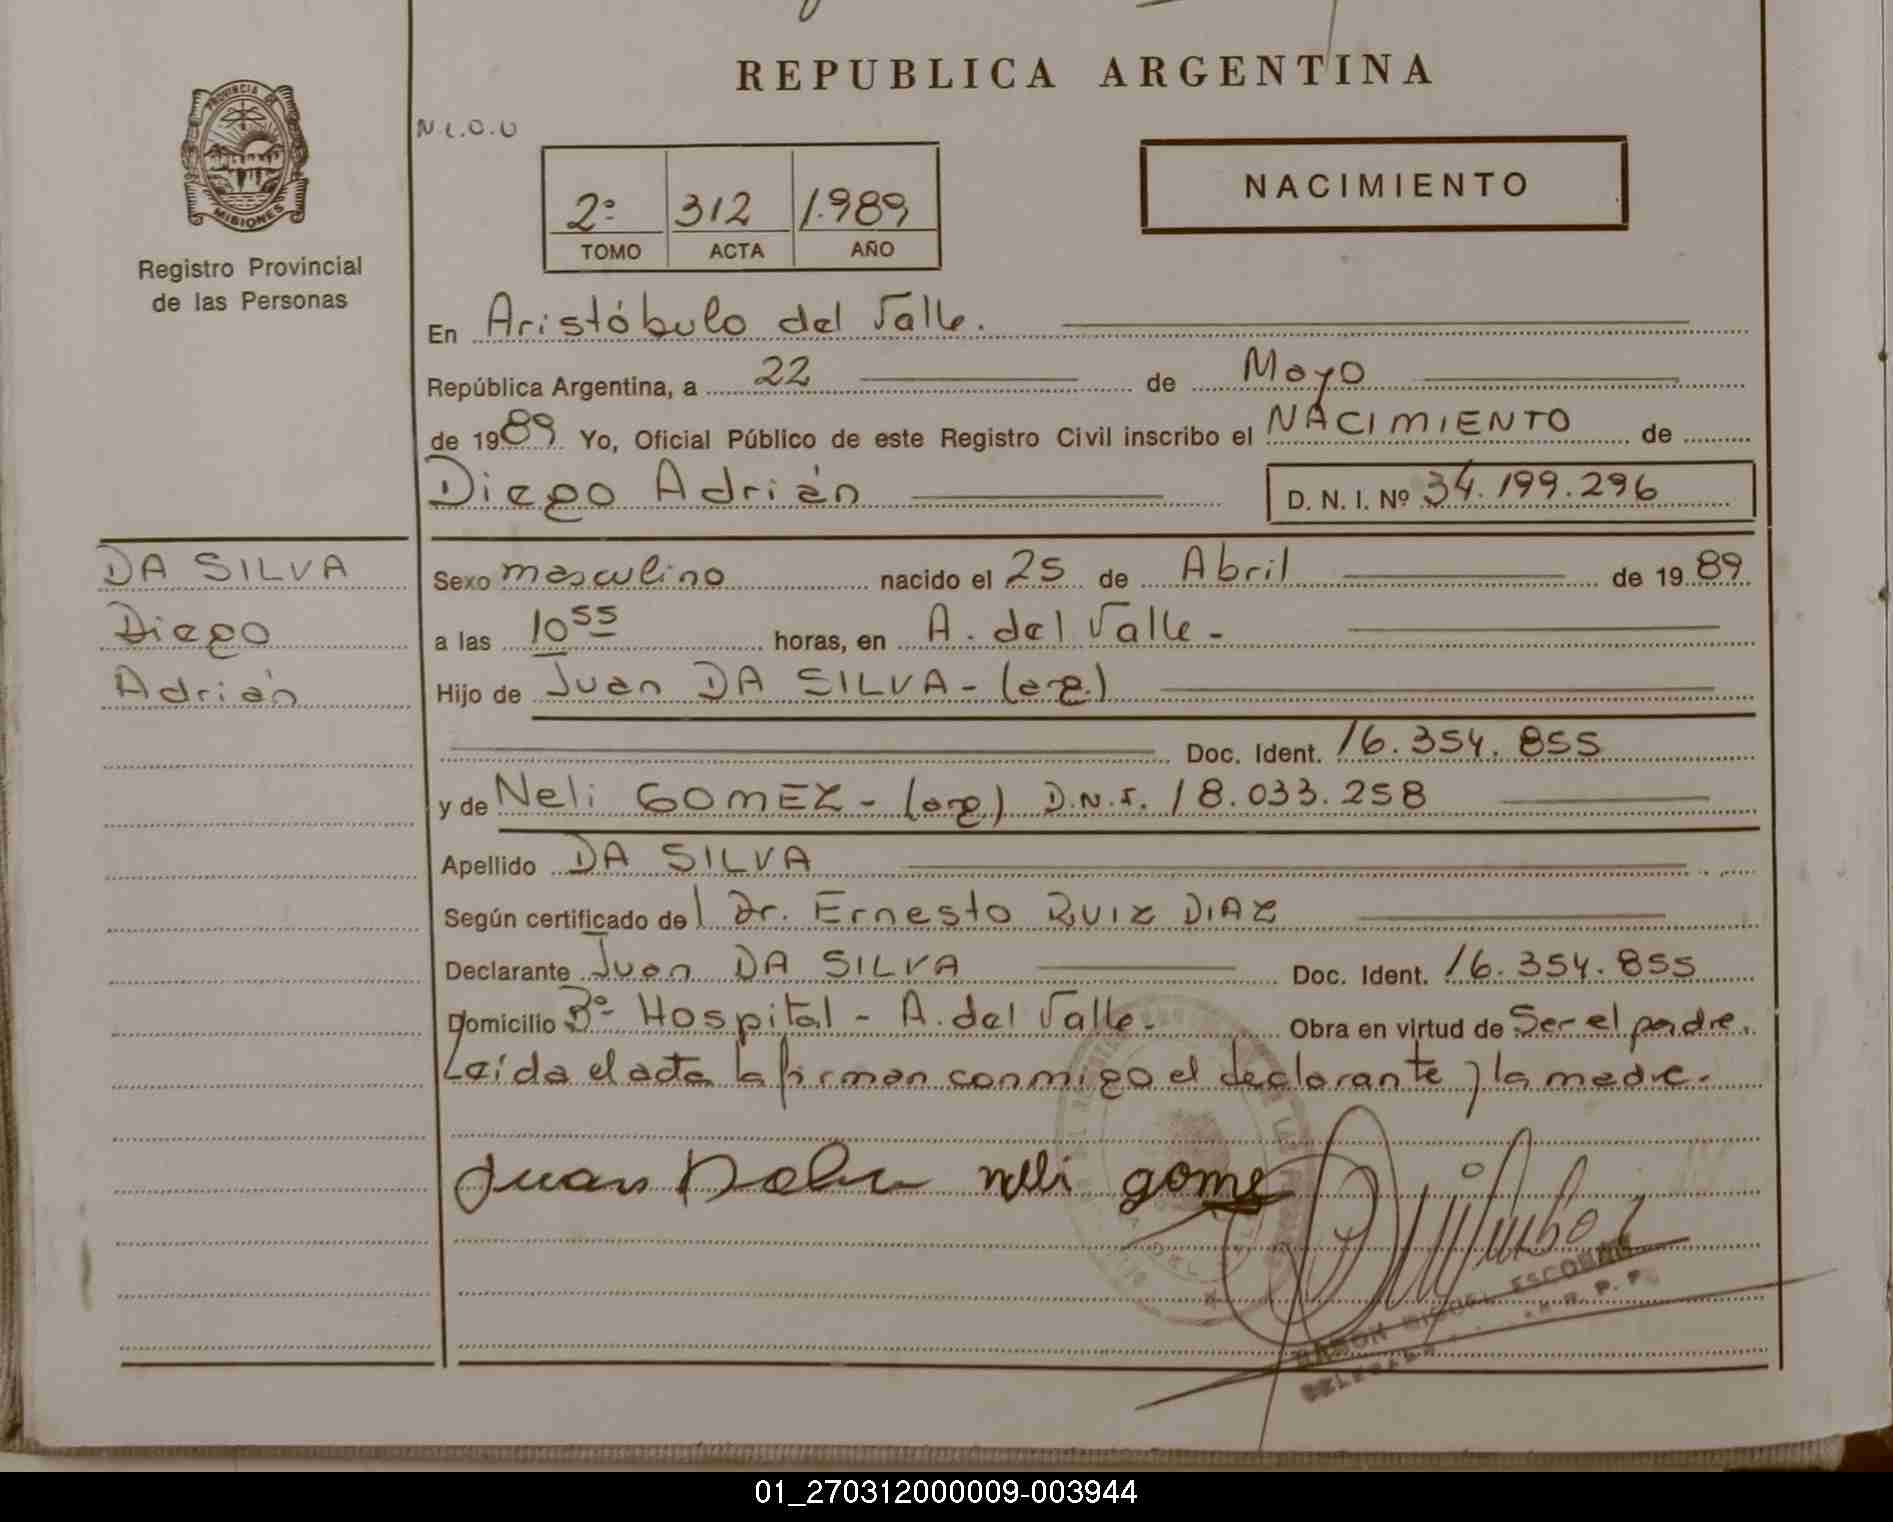 REPUBLICA ARGENTINA
PROVINCIA DE
MISIONES
Registro Provincial
de las Personas
N.L.O.U
NACIMIENTO
2º 312 1.989
TOMO ACTA AÑO
En Aristóbulo del Valle.
República Argentina, a 22 de Mayo
de 1989 Yo, Oficial Público de este Registro Civil inscribo el NACIMIENTO de
Diego Adrián D. N. I. Nº 34.199.296
DA SILVA
Diego
Adrián
Sexo masculino nacido el 25 de Abril de 1989
a las 10 55 horas, en A. del Valle -
Hijo de Juan DA SILVA - (arg.)
Doc. Ident. 16.354.855
y de Neli GOMEZ - (arg) D.N.I. 18.033.258
Apellido DA SILVA
Según certificado del Dr. Ernesto RUIZ DIAZ
Declarante Juan DA SILVA Doc. Ident. 16.354.855
Domicilio Bº Hospital - A. del Valle. Obra en virtud de Ser el padre.
Leída el acta la firman conmigo el declarante y la madre.
Juan neli gome
RAMON MIGUEL ESCOBAR
01_270312000009-003944